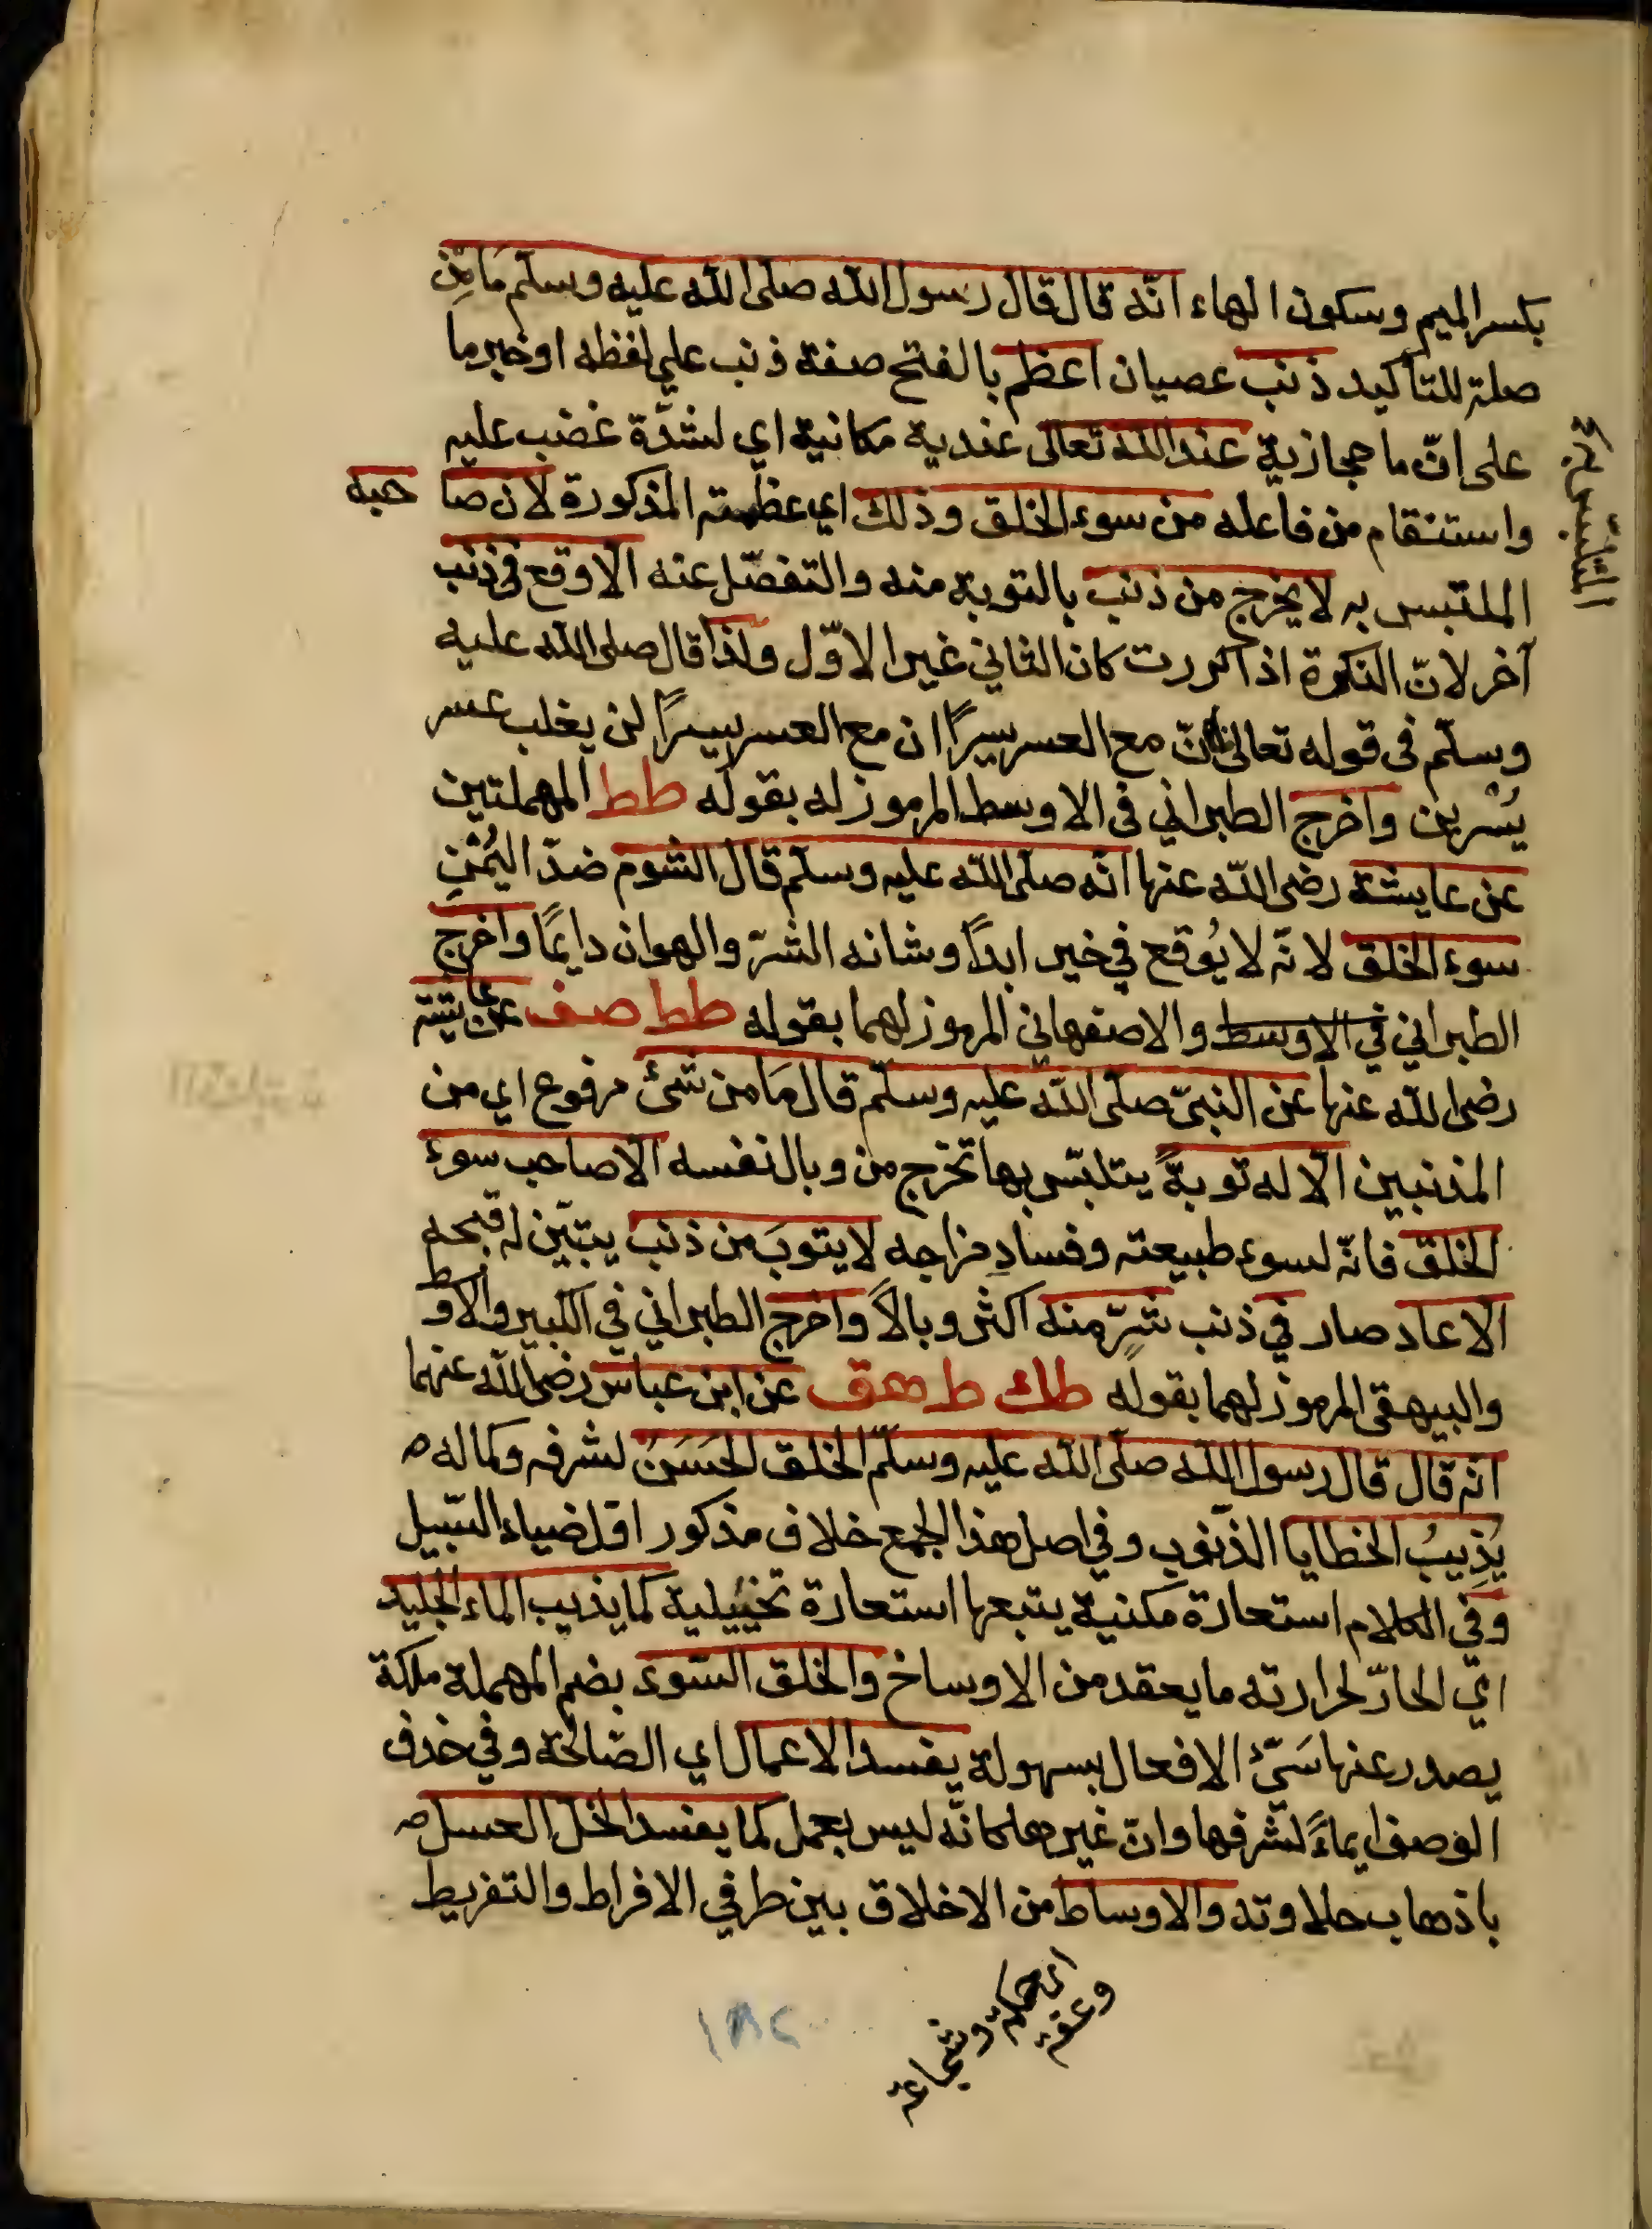 بكسر الميم وسكون الهاء انّه قال قال رسول الله صلى الله عليه وسلم مَا مِن
صلة للتأكيد ذنب عصيان اعظم بالفتح صفة ذنب علي لفظه او خبر ما
على انّ ما حجازية عند الله تعالى عندية مكانية اي لشدّة غضب عليه
واستنقام من فاعله من سوء الخلق وذلك اي عظمته المذكورة لان صا حبه
الملتبس به لا يخرج من ذنب بالتوبة منه والتفصّل عنه الا وقع في ذنب
آخر لانّ النكرة اذا كررت كان الثاني غير الاوّل ولذا قال صلى الله عليه
وسلّم فى قوله تعالى فانّ مع العسر يسرًا ان مع العسر يسرًا لن يغلب عسر
يُسْرين واخرج الطبراني فى الاوسط المرموز له بقوله طط المهملتين
عن عايشة رضى الله عنها انّه صلى الله عليه وسلم قال الشوم ضدّ اليُمْنِ
سوء الخلق لانّه لا يُوقع في خير ابدًا وشانه الشرّ والهوان دايمًا واخرج
الطبراني في الاوسط والاصفهاني المرموز لهما بقوله طط صف عن عايشة
رضى الله عنها عن النبيّ صلى الله عليه وسلّم قال مَا من شئ مرفوع اي من
المذنبين الّا له توبةً يتلبّس بها تخرج من وبال نفسه الّا صاحب سوء
الخلق فانّه لسوء طبيعته وفسادِ مزاجه لا يتوبَ من ذنب يتبيّن له قبحه
الا عاد صار في ذنب شرٍّ منه اكثر وبالاً واخرج الطبراني في الكبير والاوسط
والبيهقى المرموز لهما بقوله طك ط هق عن ابن عباس رضى الله عنهما
انه قال قال رسول الله صلى الله عليه وسلّم الخلق الحَسَنُ لشرفه وكماله
يُذِيبُ الخطايا الذّنوب وفي اصل هذا الجمع خلاف مذكور اوّل ضياء السّبيل
وفي الكلام استعارة مكنية يتبعها استعارة تخييلية كما يذيب الماء الجليد
ايّ الحارّ لحرارته ما يعقد من الاوساخ والخلق السّوء بضم المهملة ملكة
يصدر عنها سَيّئ الافعال بسهولة يفسد الاعمال اي الصّالحة وفي حذف
الوصف ايماءً لشرفها وانّ غيرها كانّه ليس بعمل كما يفسد الخلّ العسل
باذهاب حلاوته والاوساط من الاخلاق بين طرفي الافراط والتفريط
اى حكمة وشجاعة
وعفة
١٨٢